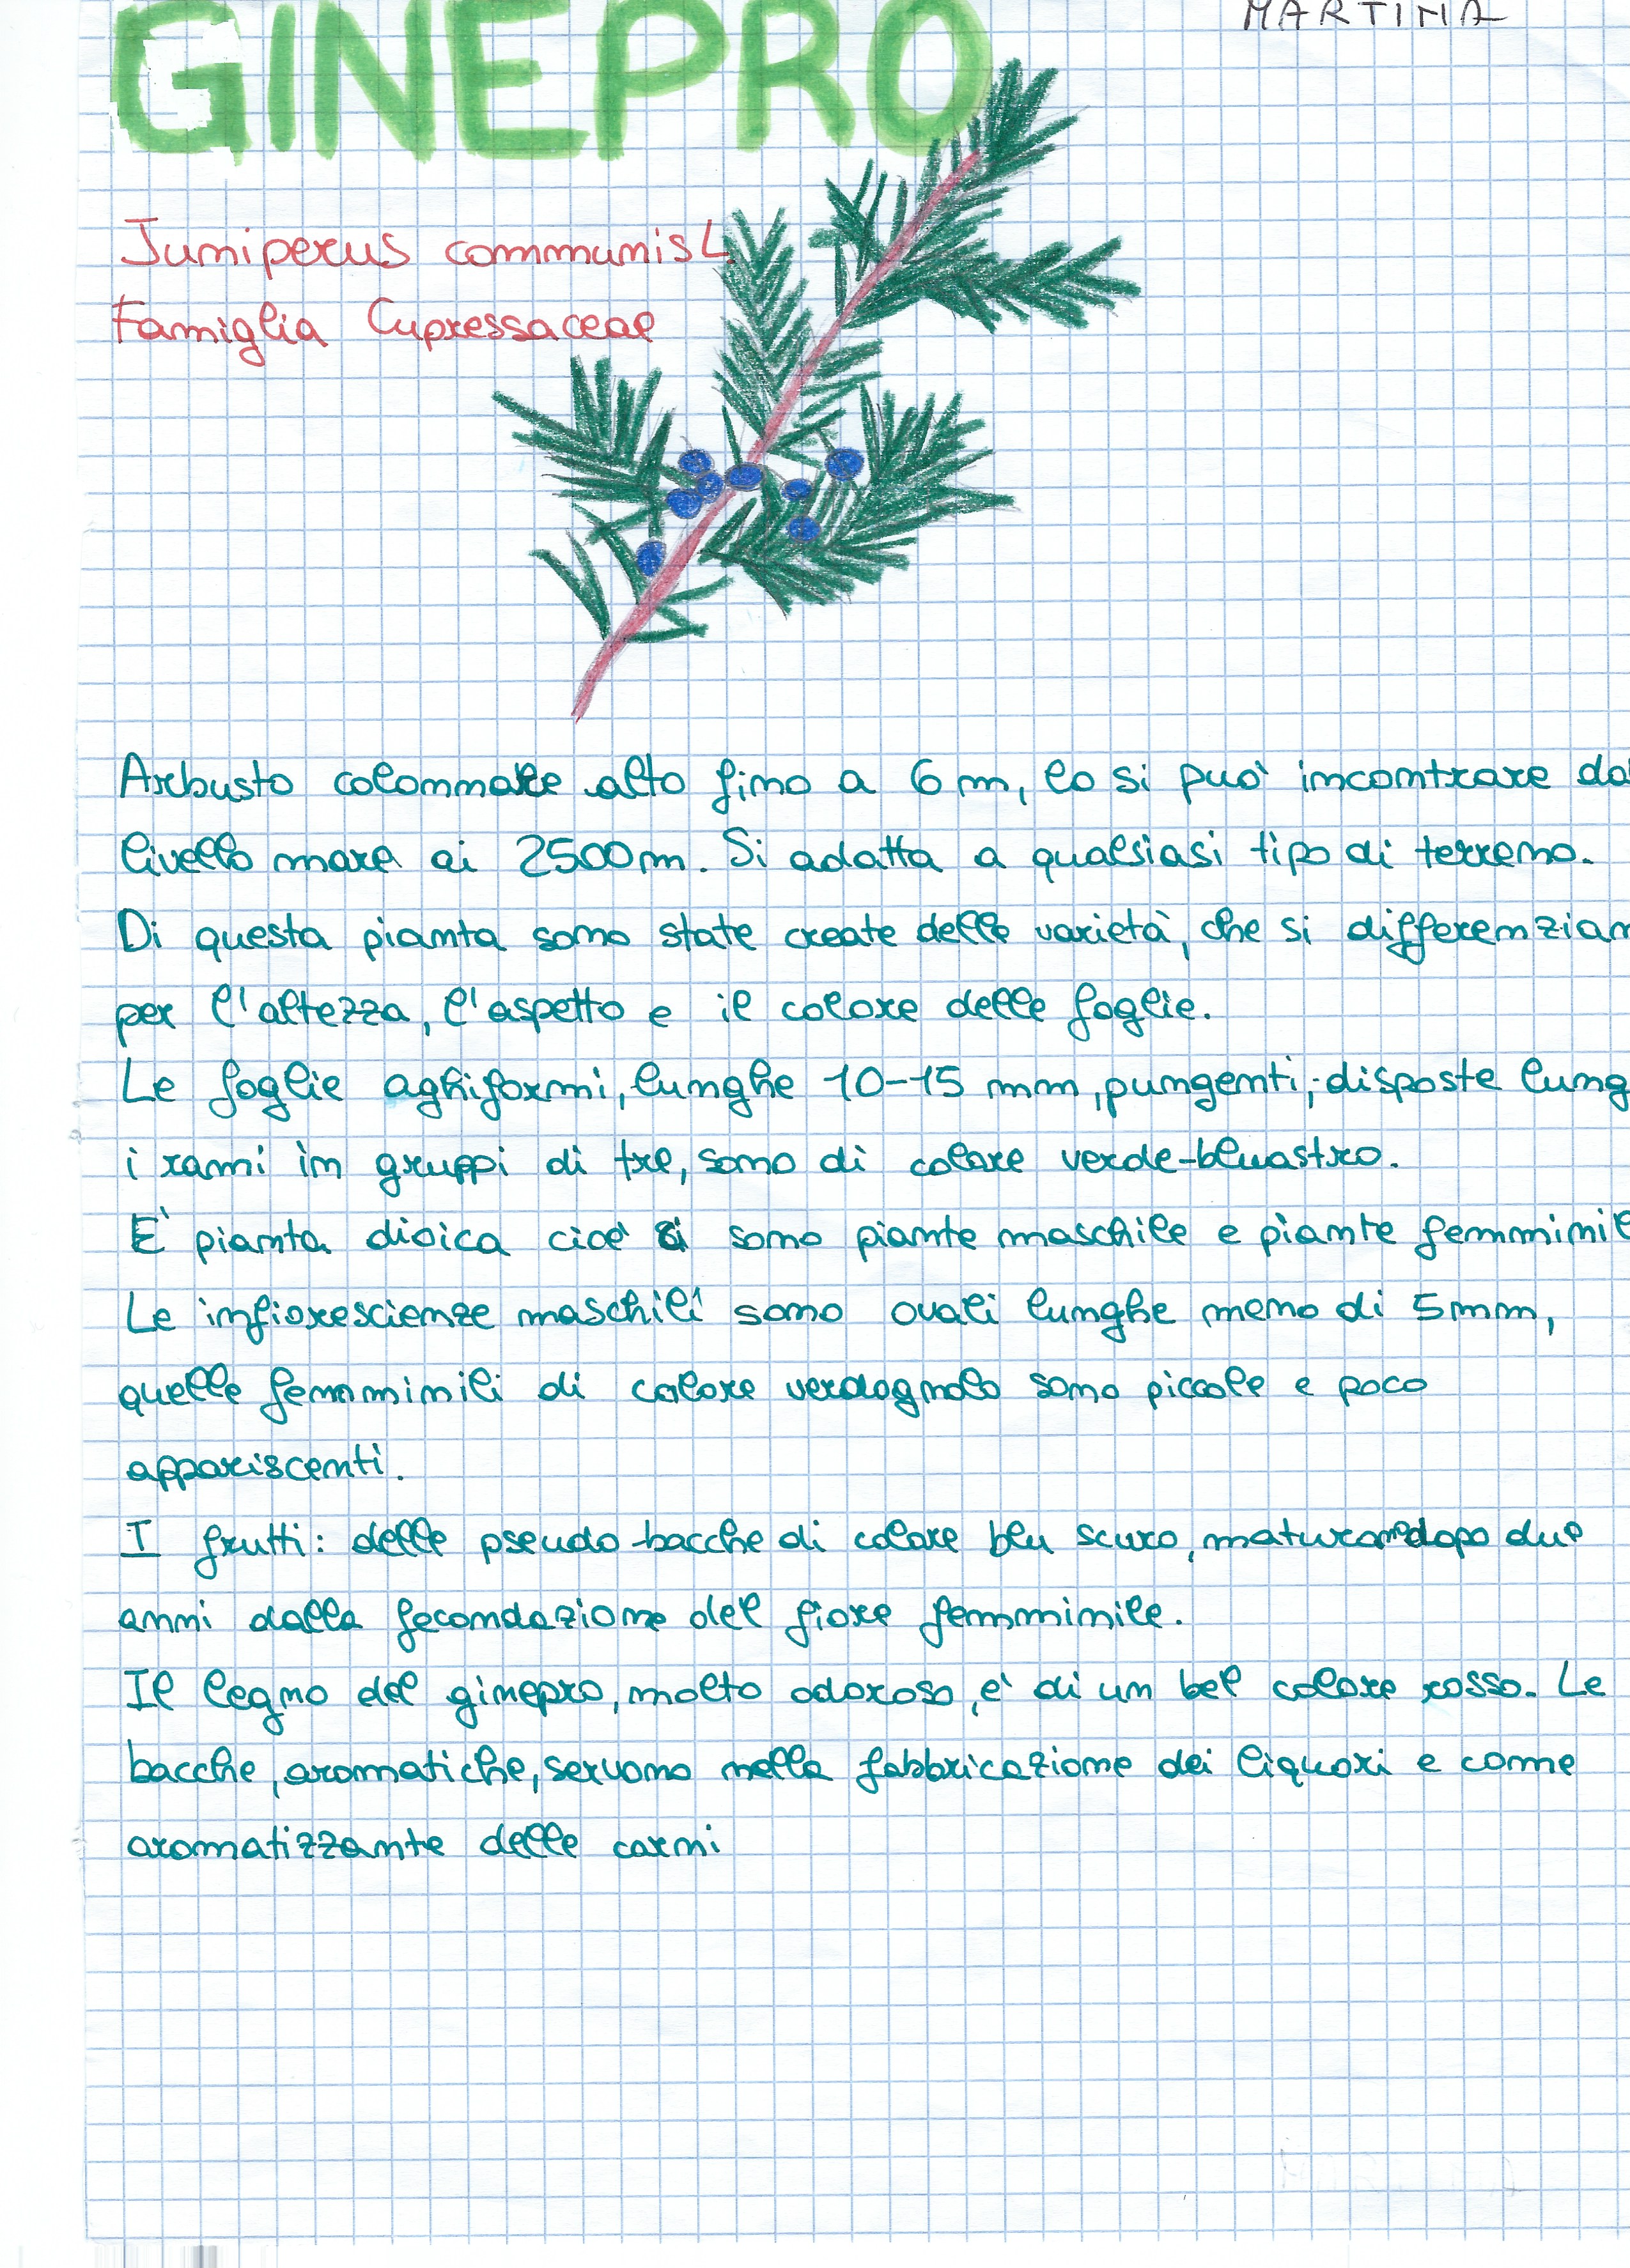 MARTINA
GINEPRO
Juniperus communis L.
Famiglia Cupressaceae
Arbusto colonnare alto fino a 6 m, lo si può incontrare dal
livello mare ai 2500 m. Si adatta a qualsiasi tipo di terreno.
Di questa pianta sono state create delle varietà, che si differenzian
per l'altezza, l'aspetto e il colore delle foglie.
Le foglie aghiformi, lunghe 10-15 mm, pungenti, disposte lung
i rami in gruppi di tre, sono di colore verde-bluastro.
E' pianta dioica cioè ci sono piante maschile e piante femminile
Le infiorescienze maschili sono ovali lunghe meno di 5 mm,
quelle femminili di colore verdognolo sono piccole e poco
appariscenti.
I frutti: delle pseudo-bacche di colore blu scuro, maturano dopo due
anni dalla fecondazione del fiore femminile.
Il legno del ginepro, molto odoroso, è di un bel colore rosso. Le
bacche, aromatiche, servono nella fabbricazione dei liquori e come
aromatizzante delle carni